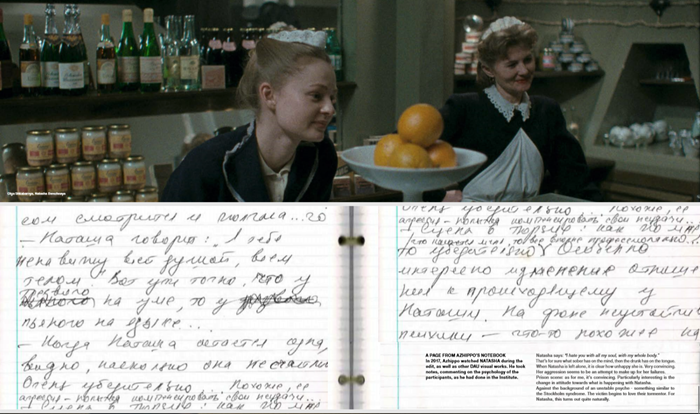 Olga Shkabarnya, Natasha Berezhnaya
сом смотрится и поняла...
– Наташа говорит: „Я тебя
ненавижу всей душой, всем
телом" Вот уж точно, что у
трезвого
на уме, то у
пьяного на языке...
– Когда Наташа остается одна,
видно, насколько она несчастна
Очень убедительно. Похоже, ее
агрессия – попытка компенсировать свои неудачи.
Очень убедительно Похоже, ее
агрессия – попытка компенсировать свои неудачи...
– Сцена в тюрьме: как по мне
то убедительно. Особенно
интересно изменение отноше
ния к происходящему у
Наташи. На фоне
психики – что-то похожее на
A PAGE FROM AZHIPPO'S NOTEBOOK
In 2017, Azhippo watched NATASHA during the
edit, as well as other DAU visual works. He took
notes, commenting on the psychology of the
participants, as he had done in the Institute.
Natasha says: "I hate you with all my soul, with my whole body."
That's for sure what sober has on the mind, then the drunk has on the tongue.
When Natasha is left alone, it is clear how unhappy she is. Very convincing.
Her aggression seems to be an attempt to make up for her failures.
Prison scene: as for me, it's convincing. Particularly interesting is the
change in attitude towards what is happening with Natasha.
Against the background of an unstable psyche - something similar to
the Stockholm syndrome. The victim begins to love their tormentor. For
Natasha, this turns out quite naturally.